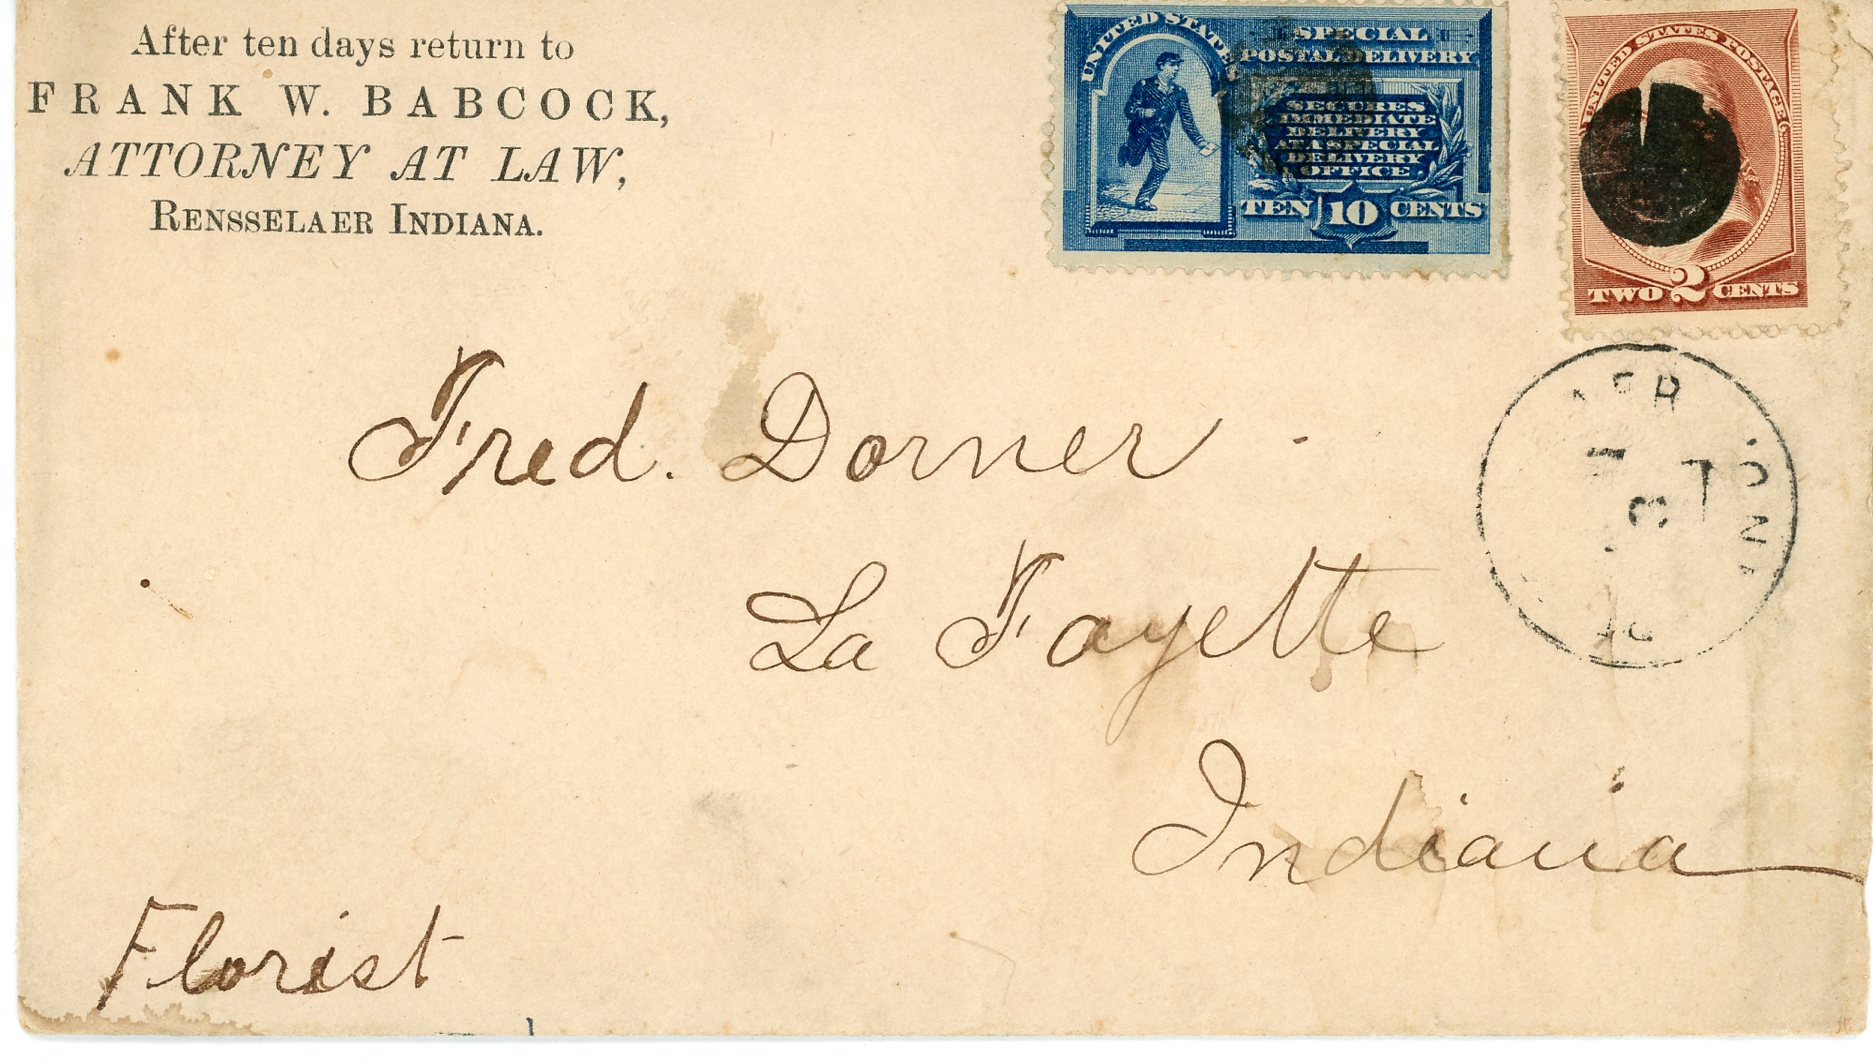 After ten days return to
FRANK W. BABCOCK,
ATTORNEY AT LAW,
RENSSELAER INDIANA.
UNITED STATES
SPECIAL
POSTAL DELIVERY
SECURES
IMMEDIATE
DELIVERY
AT A SPECIAL
DELIVERY
OFFICE.
TEN 10 CENTS
UNITED STATES POSTAGE
TWO 2 CENTS
Fred. Dorner
La Fayette
Indiana
Florist